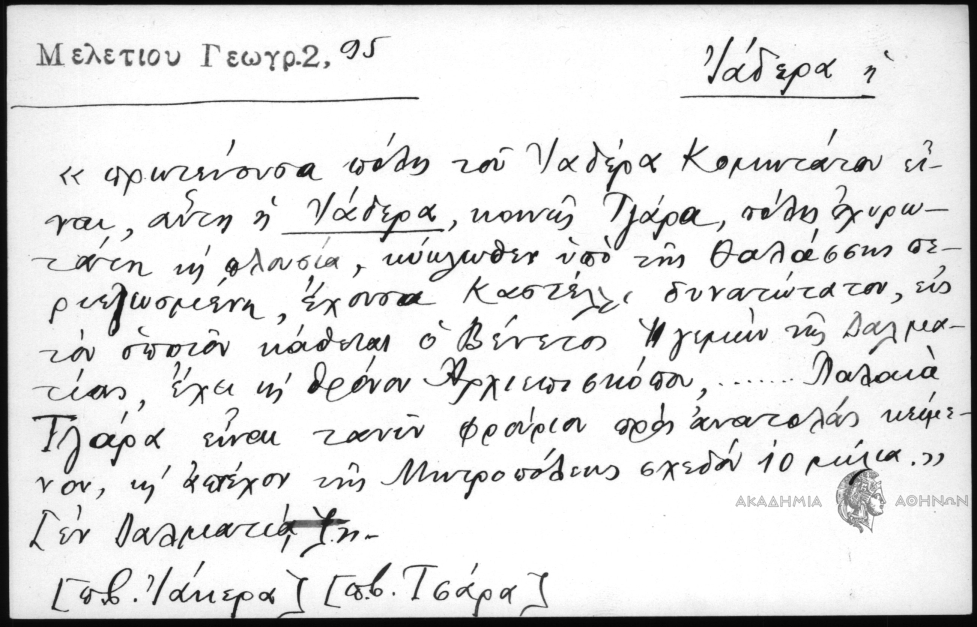 Μελετίου Γεωγρ.2, 95
Ἰάδερα ἡ
« πρωτεύουσα πόλις τοῦ Ἰαδέρα Κομιντάτου εἶ-
ναι, αὕτη ἡ Ἰάδερα, κοινῶς Τζάρα, πόλις ὀχυρω-
τάτη κ̀ πλουσία, κύκλωθεν ὑπὸ τῆς θαλάσσης πε-
ριεζωσμένη, ἔχουσα Καστέλλι δυνατώτατον, εἰς
τὸν ὁποῖον κάθεται ὁ Βένετος Ἡγεμὼν τῆς Δαλμα-
τίας, ἔχει κ̀ θρόνον Ἀρχιεπισκόπου, ...... Παλαιὰ
Τζάρα εἶναι τανῦν φρούριον πρὸς ἀνατολάς κείμε-
νον, κ̀ ἀπέχον τῆς Μητροπόλεως σχεδόν 10 μίλια.»
[ἐν Δαλματίᾳ
[πβ. Ἰάκερα] [πβ. Τσάρα]
ΑΚΑΔΗΜΙΑ ΑΘΗΝΩΝ